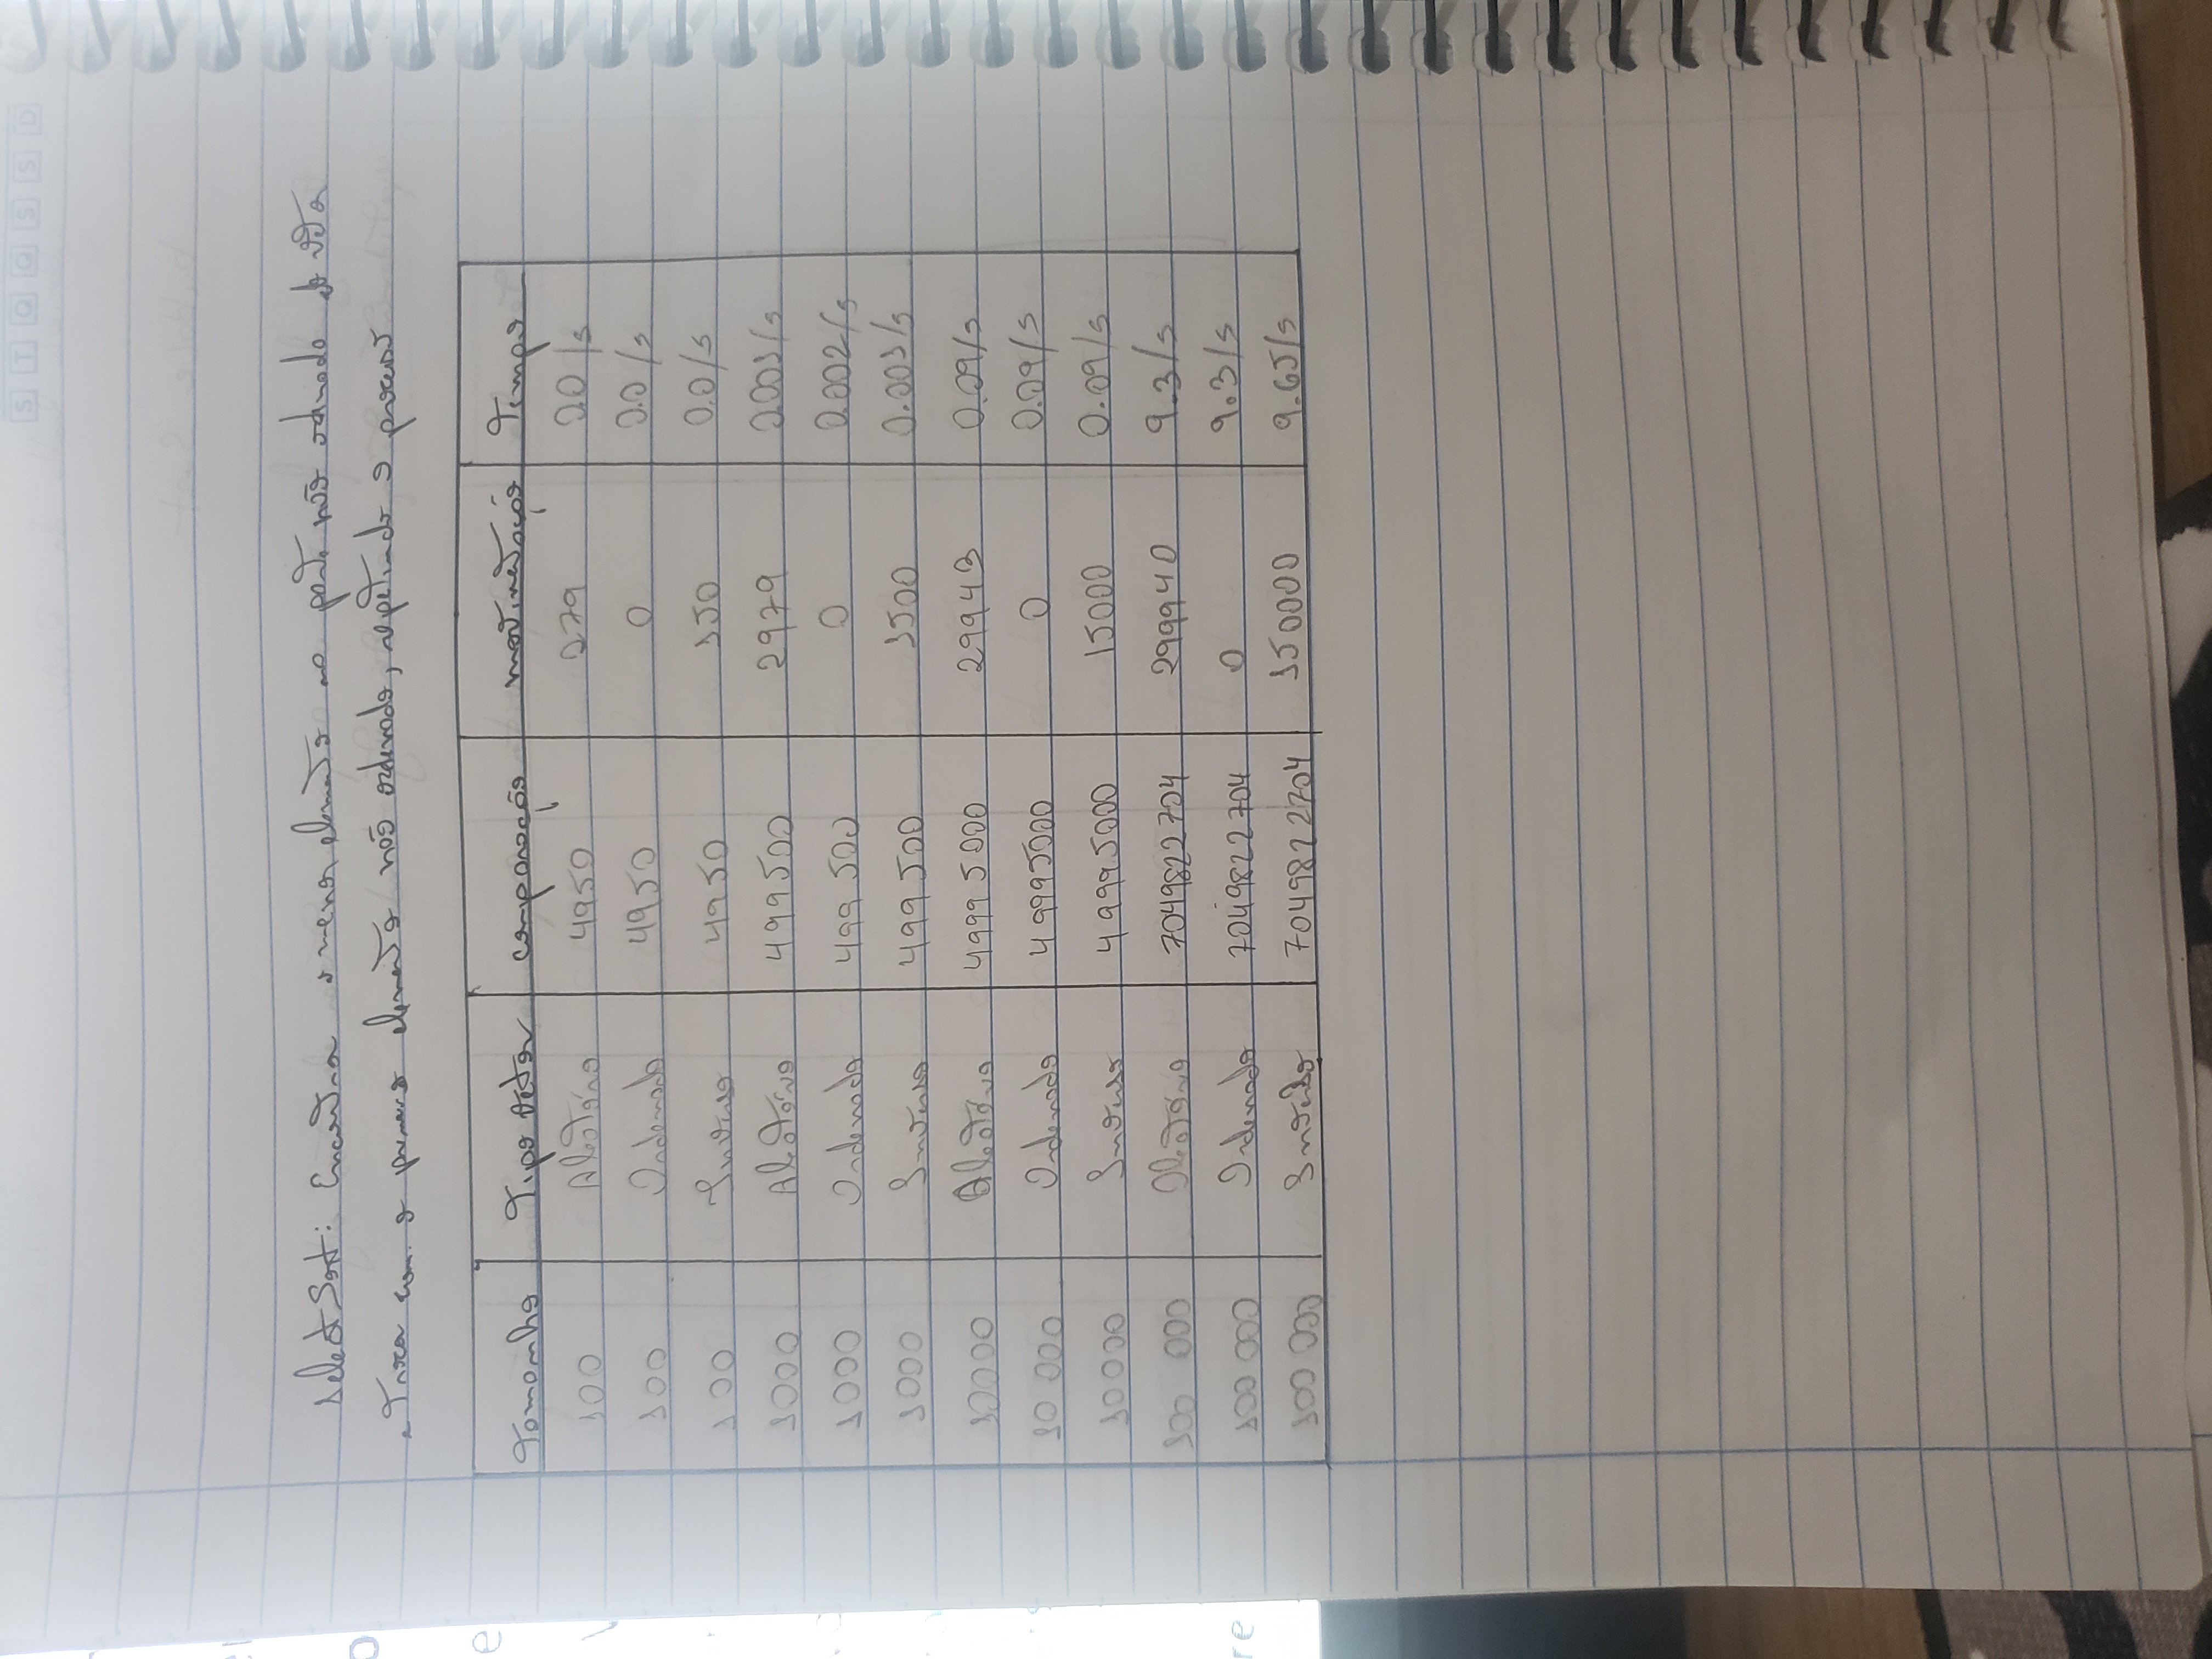 S T Q Q S S D
Select Sort: Encontra o menor elemento na parte não ordenado do vetor
e troca com o primeiro elemento não ordenado, repetindo o processo
Tamanho Tipo Vetor comparação movimentação Tempo
100 Aleatório 4950 279 0.0/s
100 Ordenado 4950 0 0.0/s
100 Inverso 4950 150 0.0/s
1000 Aleatório 499500 2979 0.001/s
1000 Ordenado 499500 0 0.002/s
1000 Inverso 499500 1500 0.001/s
10000 Aleatório 49995000 29943 0.09/s
10 000 Ordenado 49995000 0 0.09/s
10000 Inverso 49995000 15000 0.09/s
100 000 Aleatório 7049822704 299940 9.3/s
100 000 Ordenado 7049822704 0 9.3/s
100 000 Inverso 7049822704 150000 9.65/s